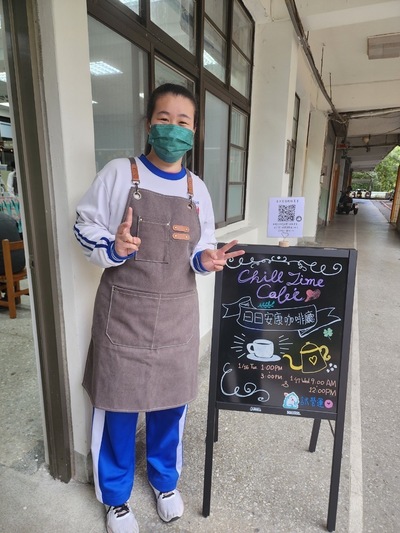 Chill Time
Café
日日安康咖啡廳
1/26 Tue 1:00PM
3:00pm
1/27 Wed 9:00 AM
12:00PM